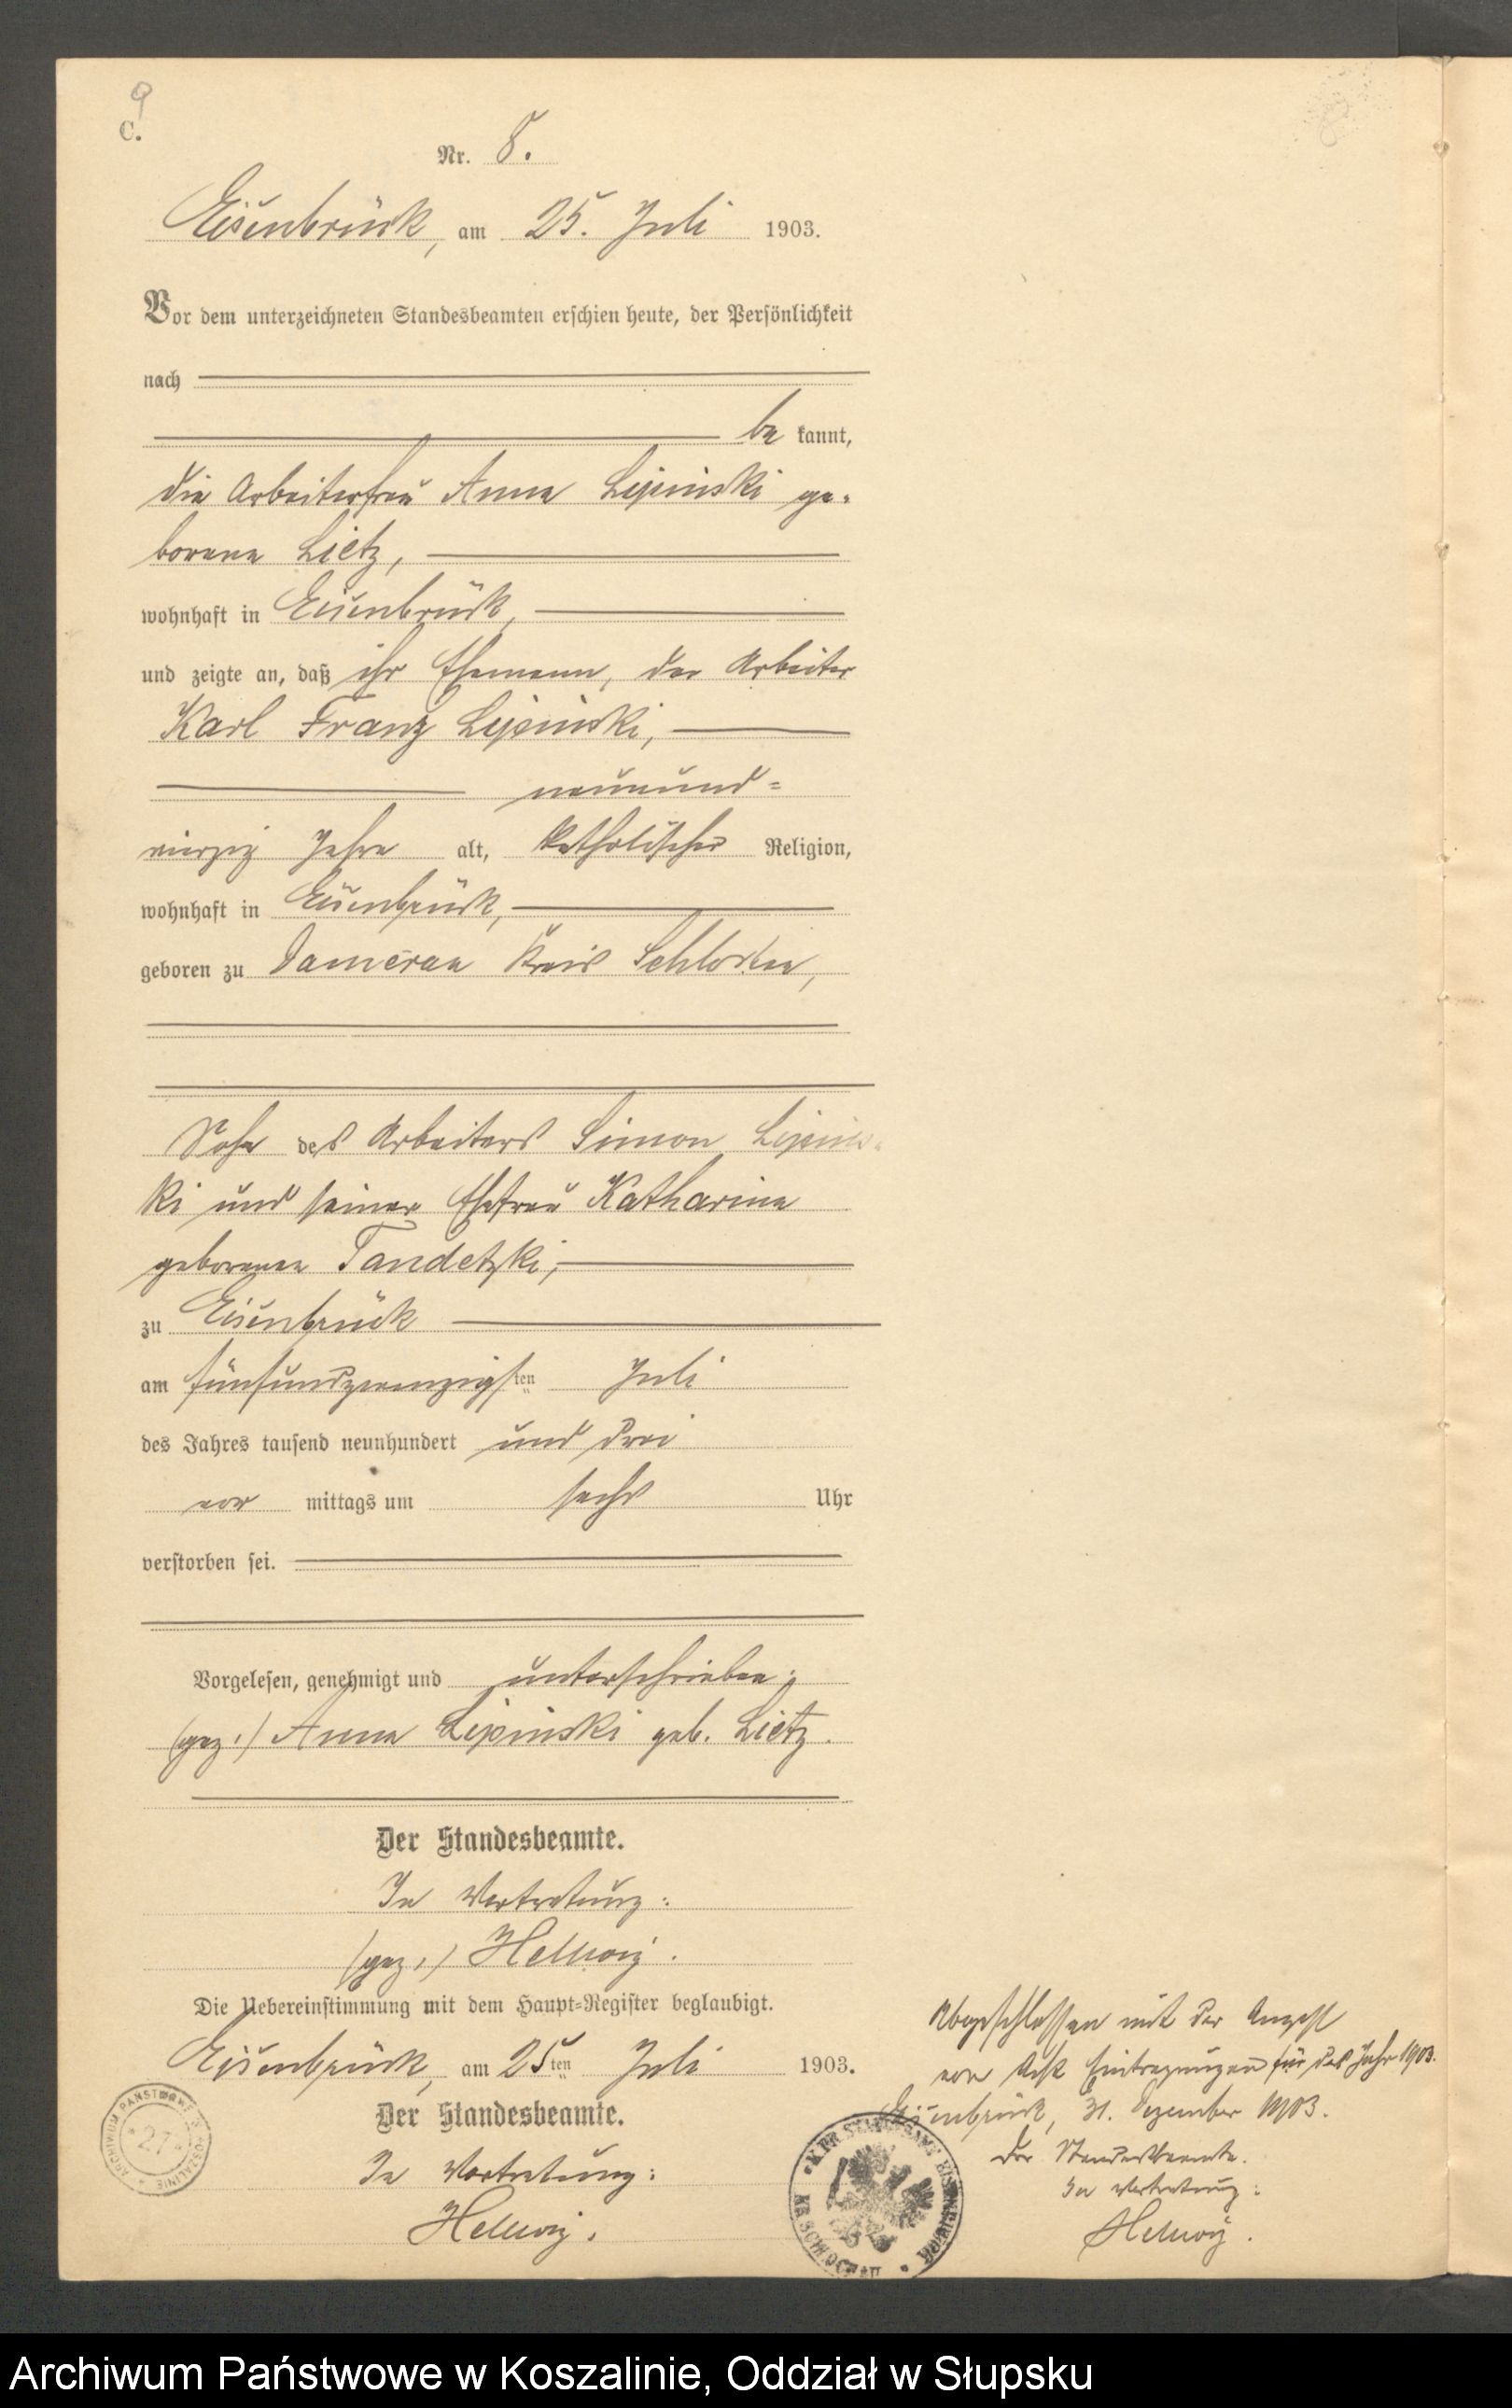 9
C.
Nr. 8.
Eisenbrück, am 25. Juli 1903.
Vor dem unterzeichneten Standesbeamten erschien heute, der Persönlichkeit
nach
be kannt,
die Arbeiterfrau Anna Lipinski ge-
borene Lietz,
wohnhaft in Eisenbrück,
und zeigte an, daß ihr Ehemann, der Arbeiter
Karl Franz Lipinski,
neunund=
vierzig Jahre alt, katholischer Religion,
wohnhaft in Eisenbrück,
geboren zu Damerau Kreis Schlochau,
Sohn des Arbeiters Simon Lipins-
ki und seiner Ehefrau Katharina
geborenen Tandetzki,
zu Eisenbrück
am fünfundzwanzigsten Juli
des Jahres tausend neunhundert und drei
vor mittags um sechs Uhr
verstorben sei.
Vorgelesen, genehmigt und unterschrieben:
(gez.) Anna Lipinski geb. Lietz.
Der Standesbeamte.
In Vertretung:
(gez.) Hellwig.
Die Uebereinstimmung mit dem Haupt=Register beglaubigt.
Eisenbrück, am 25ten Juli 1903.
Der Standesbeamte.
In Vertretung:
Hellwig.
Abgeschlossen mit der Anzahl
von Acht Eintragungen für das Jahr 1903.
Eisenbrück, 31. Dezember 1903.
Der Standesbeamte.
In Vertretung:
Hellwig.
ARCHIWUM PAŃSTWOWE W KOSZALINIE
21
K. PR. STANDESAMT EISENBRÜCK
KR. SCHLOCHAU
Archiwum Państwowe w Koszalinie, Oddział w Słupsku